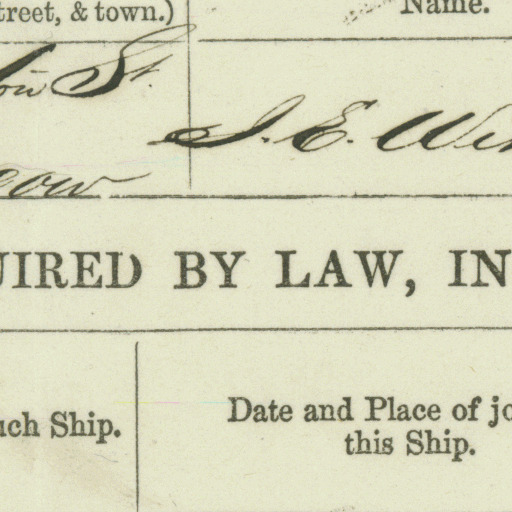 treet, & town.) Name.
St. J. E. W
ow
UIRED BY LAW, IN
uch Ship. Date and Place of jo
this Ship.